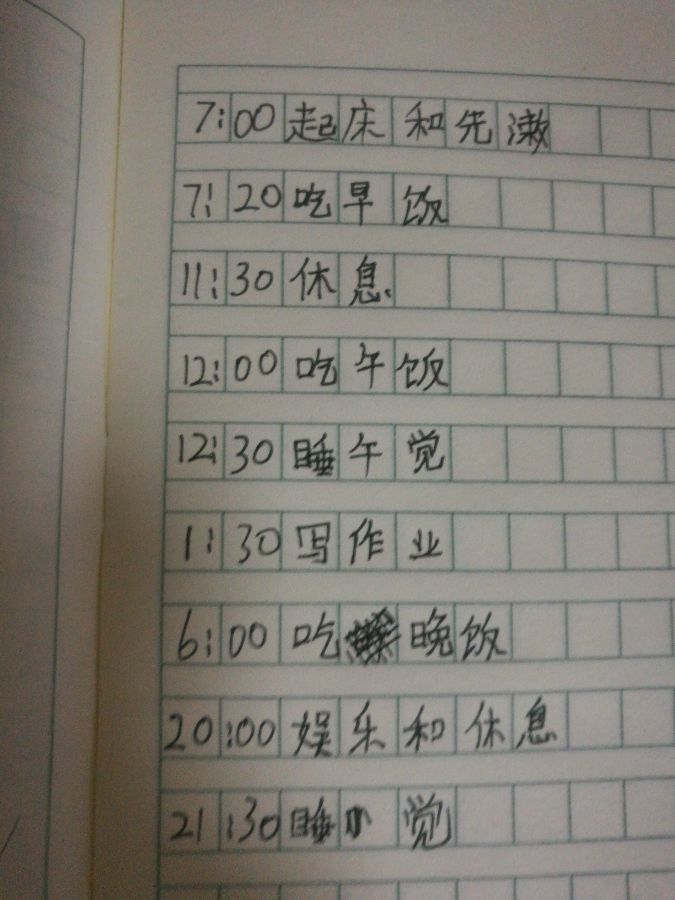 7:00起床和先漱
7:20吃早饭
11:30休息
12:00吃午饭
12:30睡午觉
1:30写作业
6:00吃晚饭
20:00娱乐和休息
21:30睡觉